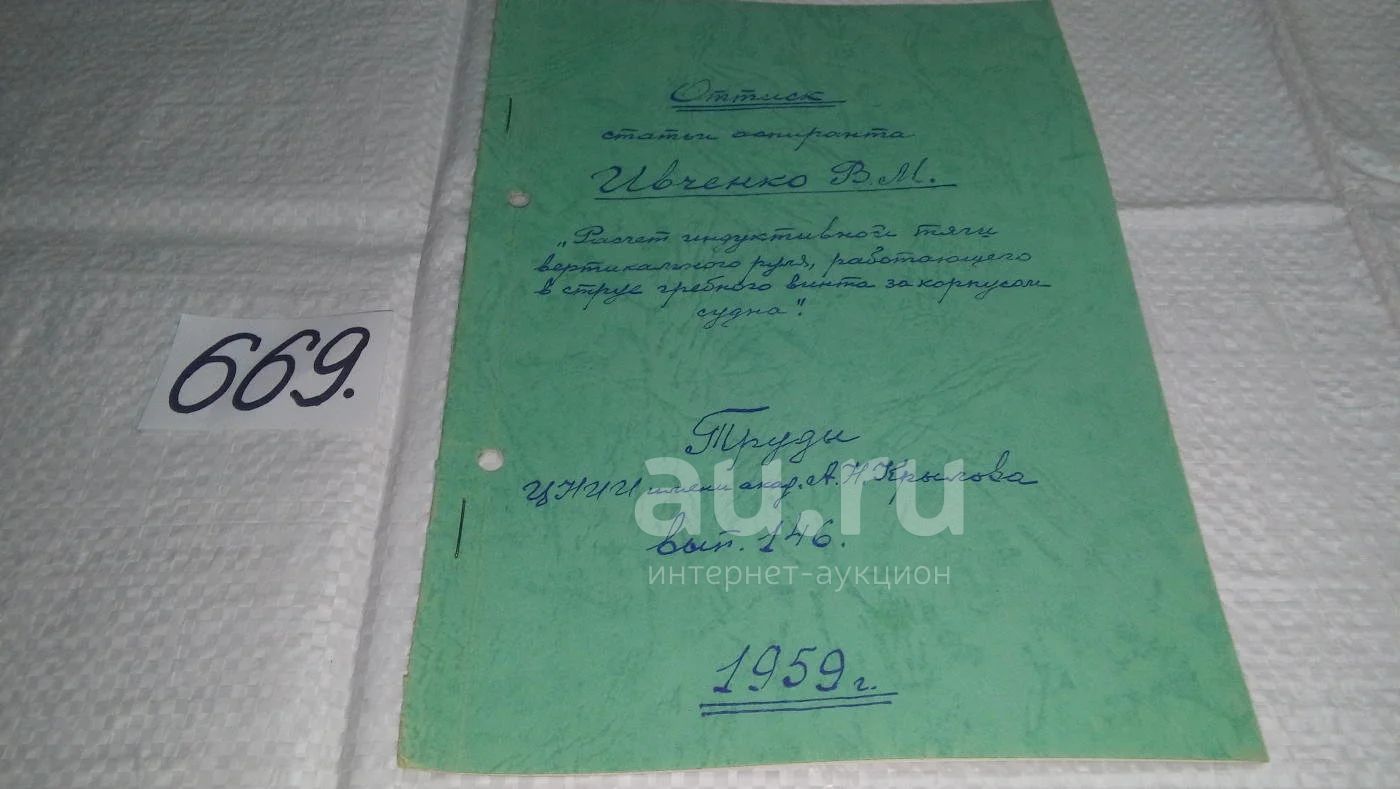 Оттиск
статьи аспиранта
Ивченко В.М.
„Расчет индуктивной тяги
вертикального руля, работающего
в струе гребного винта за корпусом
судна".
669.
Труды
ЦНИИ имени акад. А.Н.Крылова
вып. 146.
au.ru
интернет-аукцион
1959 г.